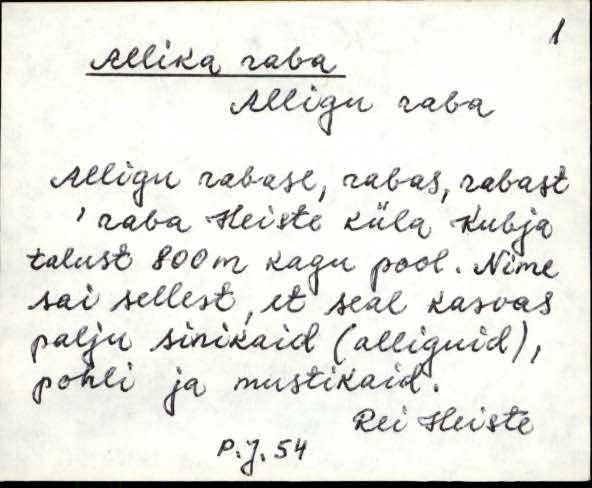 1
Allika raba
Alligu raba
Alligu rabase, rabas, rabast
' raba Heiste küla Kubja
talust 800 m kagu pool. Nime
sai sellest, et seal kasvas
palju sinikaid (alliguid),
pohli ja mustikaid.
Rei Heiste
P.J. 54